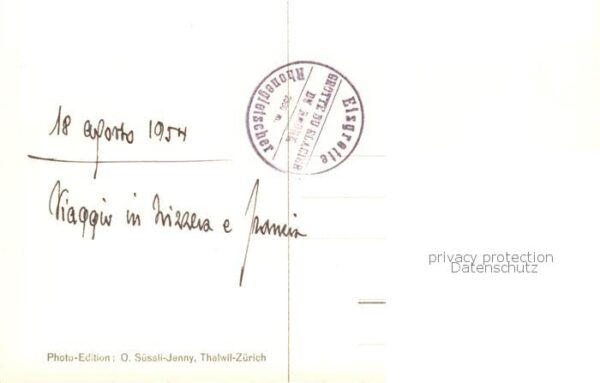 18 agosto 1954
Viaggio in Svizzera e Francia
Eisgrotte
Rhonegletscher
GROTTE DU GLACIER
DU RHONE
privacy protection
Datenschutz
Photo-Edition: O. Süssli-Jenny, Thalwil-Zürich